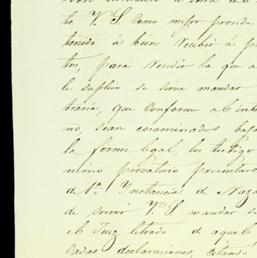 te V. S. como mejor proceda
tenido á bien recibir á pru
tos, para rendir la que a
le suplico se sirva mandar
traria, que conforme al inte
no, sean examinados bajo
la forma legal, los testigo
mino probatorio presentare
de 1ª Instancia de Naga
de servir V. S. mandar se
el Juez letrado de aquel
sadas declaraciones, citan